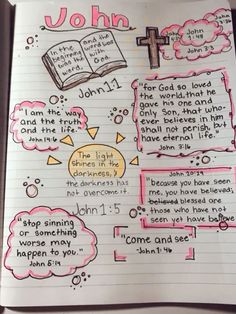 John
In the
beginning
was the
word,
and the
word was
with
God.
John 1:1
John
1:48
John 3:3
"for God so loved
the world, that he
gave his one and
only Son, that who-
ever believes in him
shall not perish but
have eternal life."
John 3:16
"I am the way
and the truth
and the life."
John 14:6
The light
shines in the
darkness,
the darkness has
not overcome it.
John 1:5
John 20:29
"because you have seen
me, you have believed;
believed blessed are
those who have not
seen yet have believe
"stop sinning
or something
worse may
happen to you."
John 5:14
"Come and see"
-John 1:46